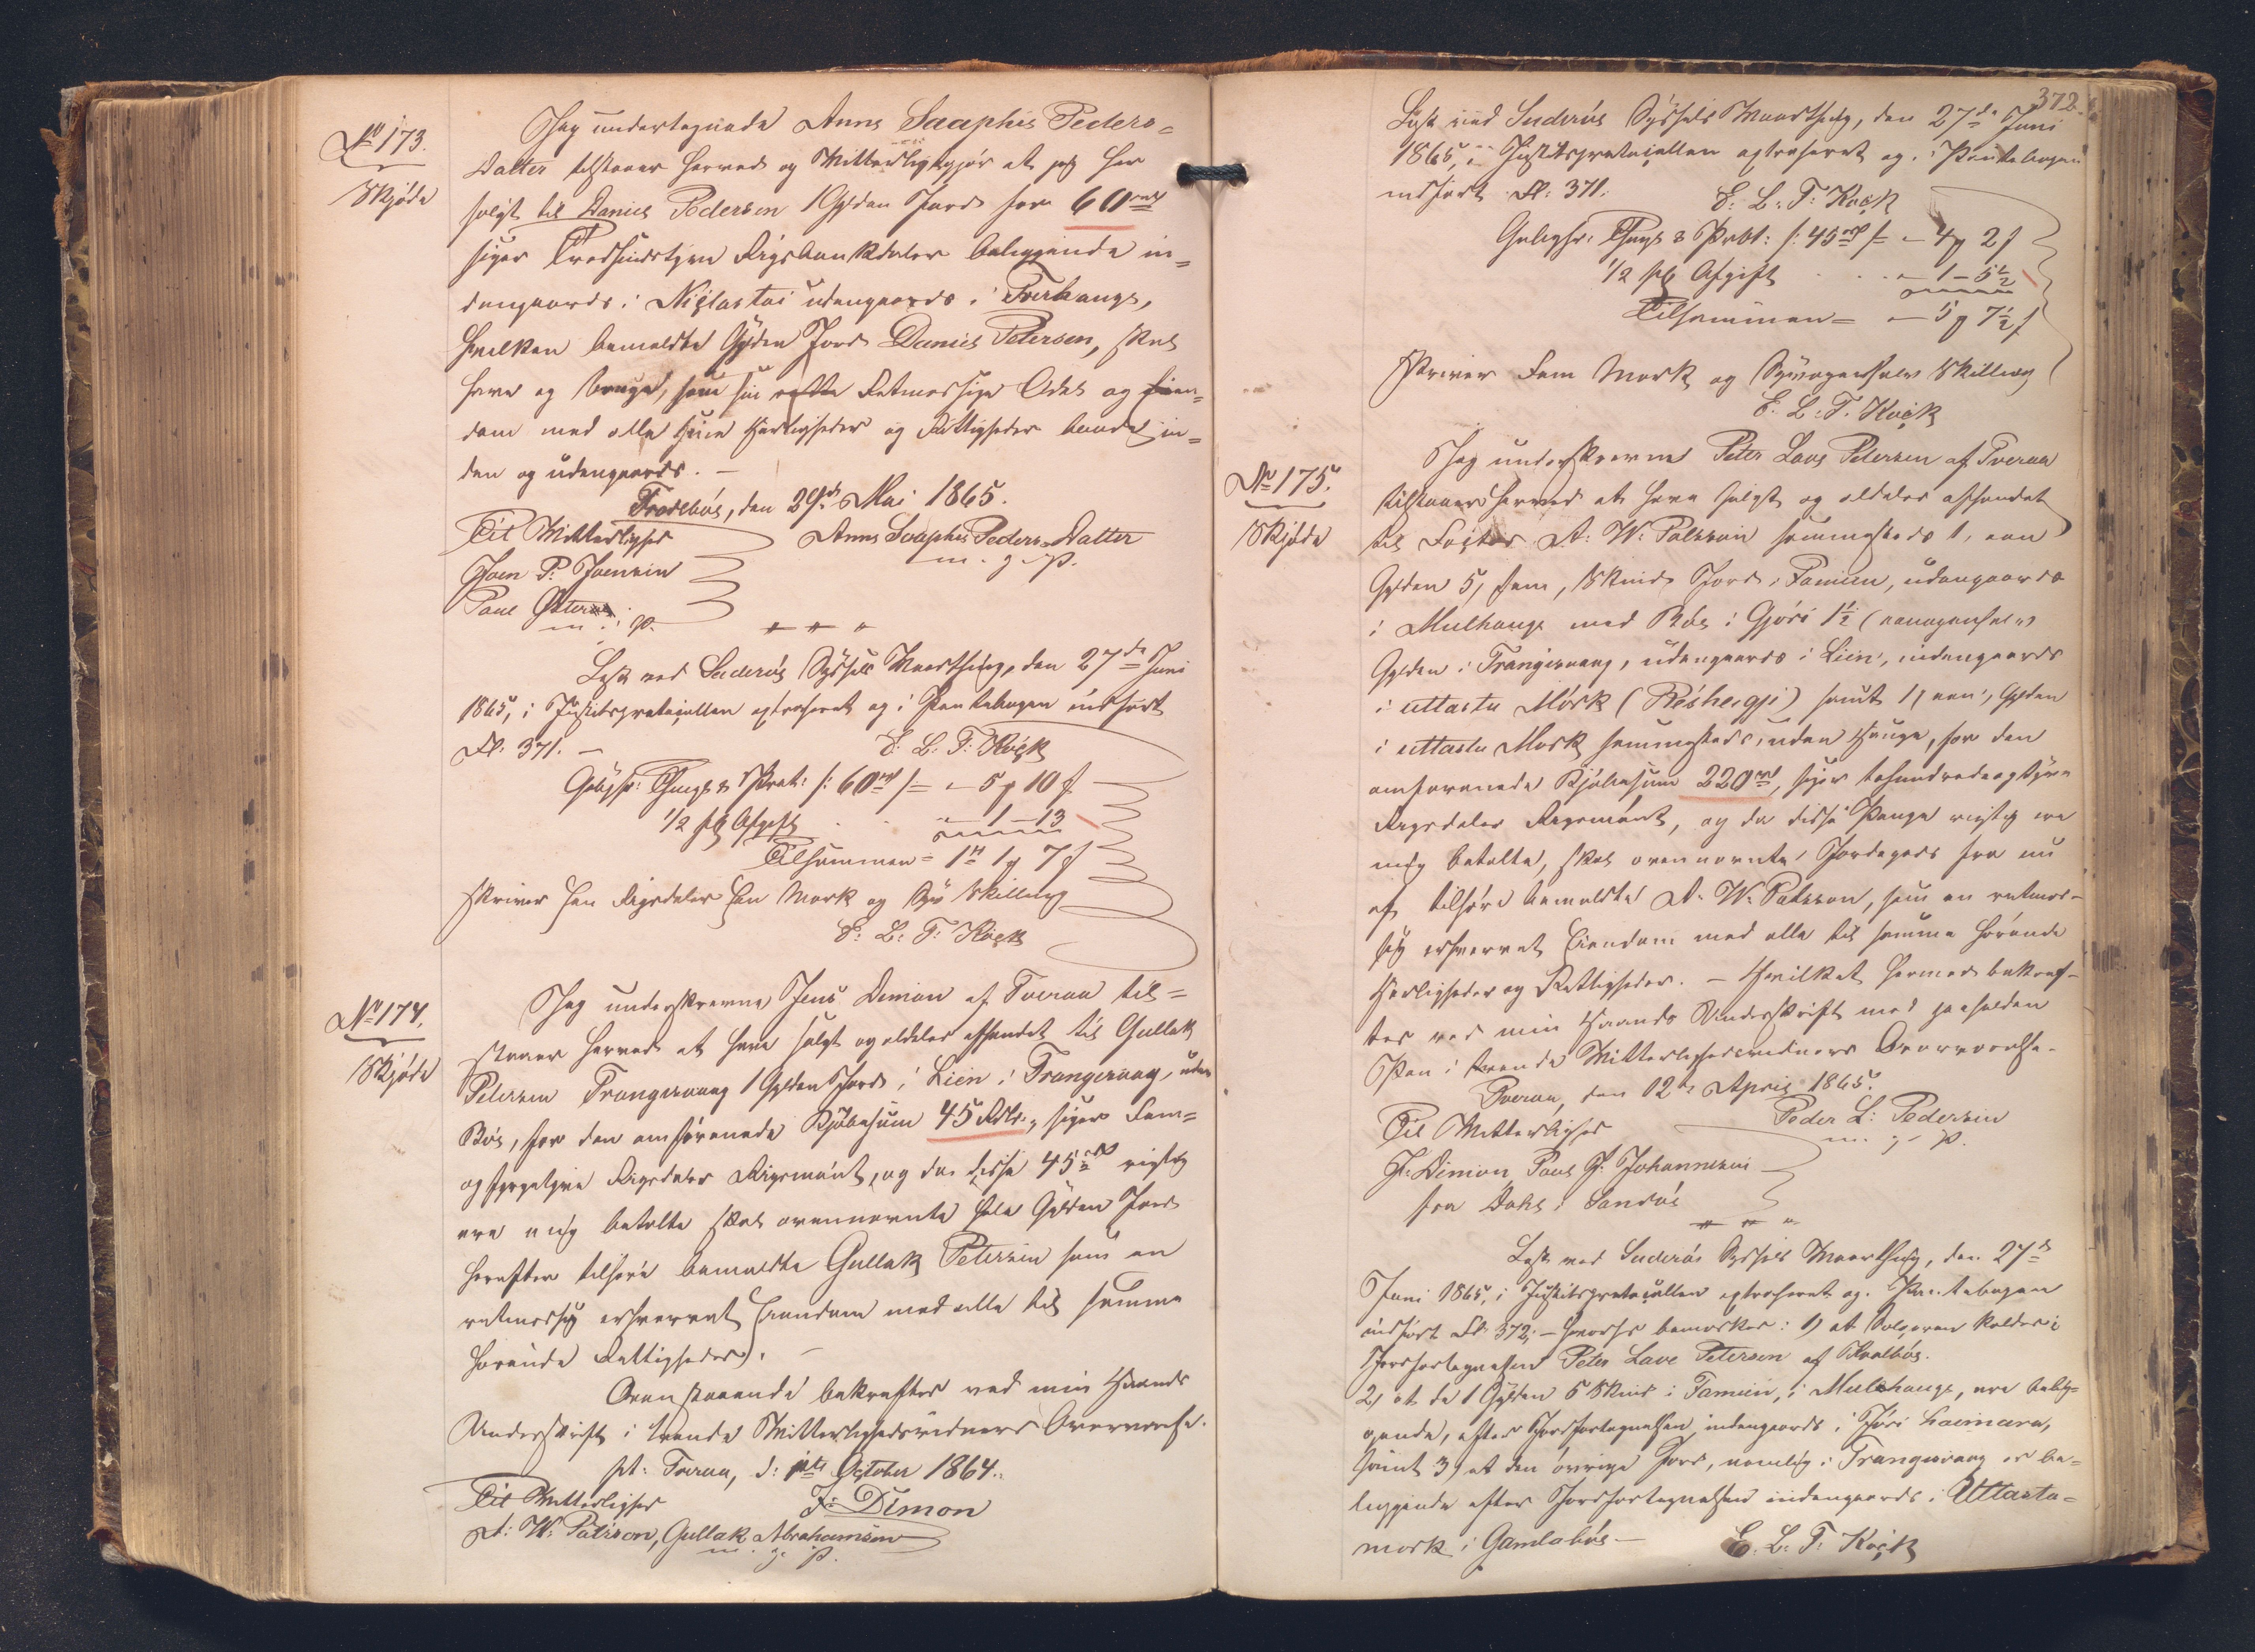 No 173.
Skjøde
Jeg undertegnede Anna Saaphie Peders=
Datter tilstaaer herved og Vitterliggjør at jeg har
solgt til Daniel Pedersen 1 Gylden Jord for 60 rd
siger Tredsindstyve Rigsbankdaler beliggende in=
dengaards i Niclastoi udengaards i Frerhauge,
hvilken bemeldte Gylden Jord Daniel Petersen, skal
have og bruge, som sin Retmæssige Odel og Eien=
dom med alle sine Herligheder og Rettigheder baade in=
den og udengaards. —
Frodebøe, den 29de Mai 1865.
Til Vitterlighed Anna Saaphie Peders Datter
m. g. P.
Joen P. Joensen
Paul
m. i. P.
Læst ved Suderøe Syssels Vaarthing, den 27de Juni
1865, i Justitsprotocollen extraheret og i Pantebogen indført
Fl. 371. — E. L. T. Kock
Gebyhr: Thingl. & Prot: /: 60 rd /= " – 5 ƒ 10 ß
1/2 pCt Afgift . . " – 1 – 13
Tilsammen = 1 rd 1 ƒ 7 ß
skriver Een Rigsdaler Een Mark og Syv Skilling
E. L. T. Kock
No 174.
Skjøde
Jeg underskrevne Jens Dimon af Tveraa til=
staaer herved at have solgt og aldeles afhændet til Gullak
Petersen Trangisvaag 1 Gylden Jord i Lien i Trangisvaag, uden
Bøe, for den omførenede Kjøbesum 45 Rdlr., siger Fem=
ogfyrgetyve Rigsdaler Rigsmønt, og da disse 45 rd rigtig
ere mig betalte skal ovennævnte hele Gylden Jord
herefter tilhøre bemeldte Gullak Petersen som en
retmæssig erhvervet Eiendom med alle til samme
hørende Rettigheder. —
Ovenstaaende bekræftes ved min Haands
Underskrift i tvende Vitterlighedsvidners Overværelse.
pt. Tveraa, d: October 1864.
Til Vitterlighed J: Dimon
D: W: Palsson, Gullak Abrahamsen
m. g. P.
372.
Læst ved Suderøe Syssels Vaarthing, den 27de Juni
1865, i Justitsprotocollen extraheret og i Pantebogen
indført Fl: 371. E. L. T. Kock
Gebyhr: Thingl. & Prot: /: 45 rd /= " – 4 ƒ 2 ß
1/2 pCt Afgift . . . " – 1 – 5 1/2
Tilsammen = " – 5 ƒ 7 1/2 ß
skriver Fem Mark og Syvogenhalv Skilling
E. L. T. Kock
No 175.
Skjøde
Jeg underskrevne Peter Lave Petersen af Tveraa
tilstaaer herved at have solgt og aldeles afhændet
til D: W: Palsson sammesteds 1, een
Gylden 5, fem, Skind Jord i Famien, udengaards
i Mulhauge med Bøe i Gjöri 1 1/2 (eenogenhalv)
Gylden i Trangisvaag, udengaards i Lien, indengaards
i uttastu Mörk (Réshejgji) samt 1, een, Gylden
i uttastu Mørk sammesteds, uden Hauge, for den
omforenede Kjøbesum 220 rd, siger tohundredeogtyve
Rigsdaler Rigsmønt, og da disse Penge rigtig ere
mig betalte, skal ovennævnte Jordegods fra nu
af tilhøre bemeldte D: W: Palsson, som en retmæs=
sig erhvervet Eiendom med alle til samme hørende
Herligheder og Rettigheder. — Hvilket hermed bekræf=
tes ved min Haands Underskrift med paaholden
Pen i tvende Vitterlighedsvidners Overværelse.
Tveraa, den 12te April 1865.
Til Vitterlighed Peder L: Pedersen
m. g. P.
J. Dimon, Poul J. Johannesen
fra Dahl i Sandøe
Læst ved Suderøe Syssels Vaarthing, den 27de
Juni 1865, i Justitsprotocollen extraheret og i Pantebogen
indført Fl. 372; — hvorhos bemærkes: 1) at Sælgeren kaldes i
Jordfortegnelsen Peter Lave Petersen af Kvalbøe.
2, at de 1 Gylden 5 Skind i Famien, i Mulehauge, ere belig=
gende, efter Jordfortegnelsen indengaards i Jøri Laimara,
samt 3) at den øvrige Jord, nemlig i Trangisvaag er be=
liggende efter Jordfortegnelsen indengaards i Uttasta=
mørk i Gamlabøe — E. L. T. Kock